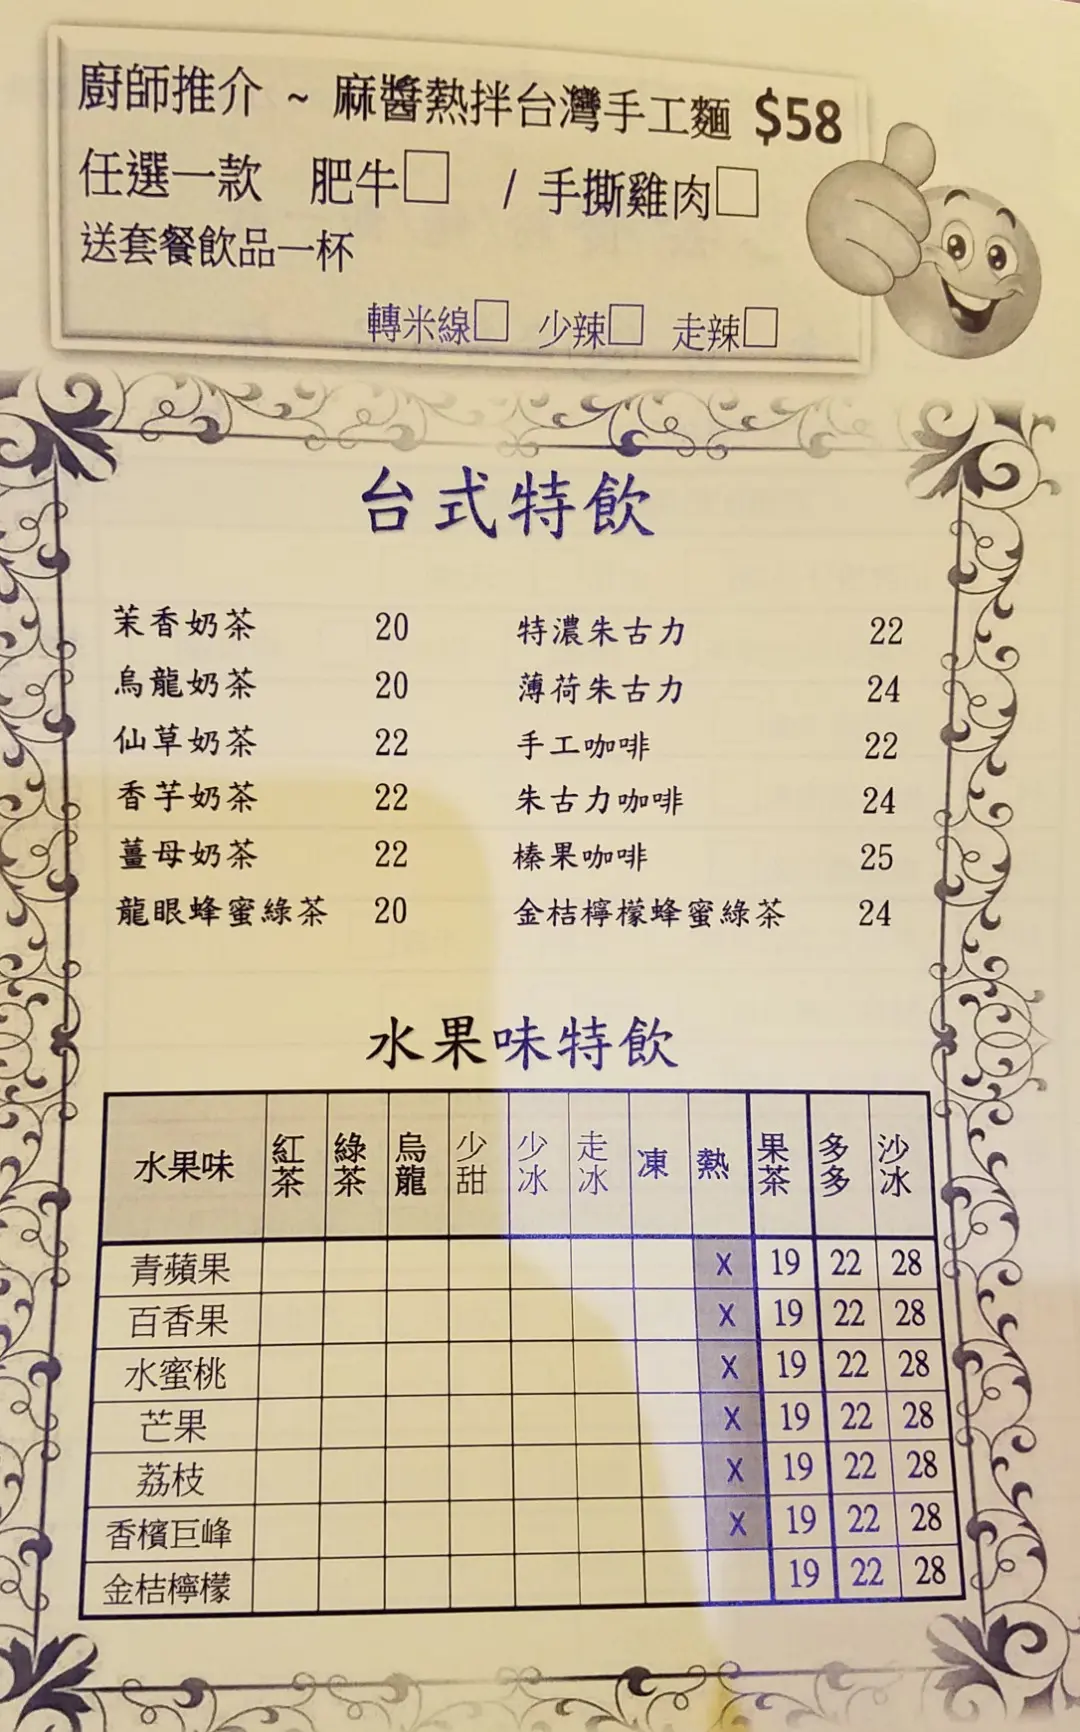 廚師推介 ~ 麻醬熱拌台灣手工麵 $58
任選一款 肥牛□ / 手撕雞肉□
送套餐飲品一杯
轉米線□ 少辣□ 走辣□
台式特飲
茉香奶茶 20 特濃朱古力 22
烏龍奶茶 20 薄荷朱古力 24
仙草奶茶 22 手工咖啡 22
香芋奶茶 22 朱古力咖啡 24
薑母奶茶 22 榛果咖啡 25
龍眼蜂蜜綠茶 20 金桔檸檬蜂蜜綠茶 24
水果味特飲
水果味 紅茶 綠茶 烏龍 少甜 少冰 走冰 凍 熱 果茶 多多 沙冰
青蘋果 X 19 22 28
百香果 X 19 22 28
水蜜桃 X 19 22 28
芒果 X 19 22 28
荔枝 X 19 22 28
香檳巨峰 X 19 22 28
金桔檸檬 19 22 28